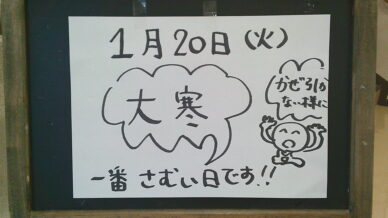 1月20日(火)
大寒
かぜ引か
ない様に
一番 さむい日です!!